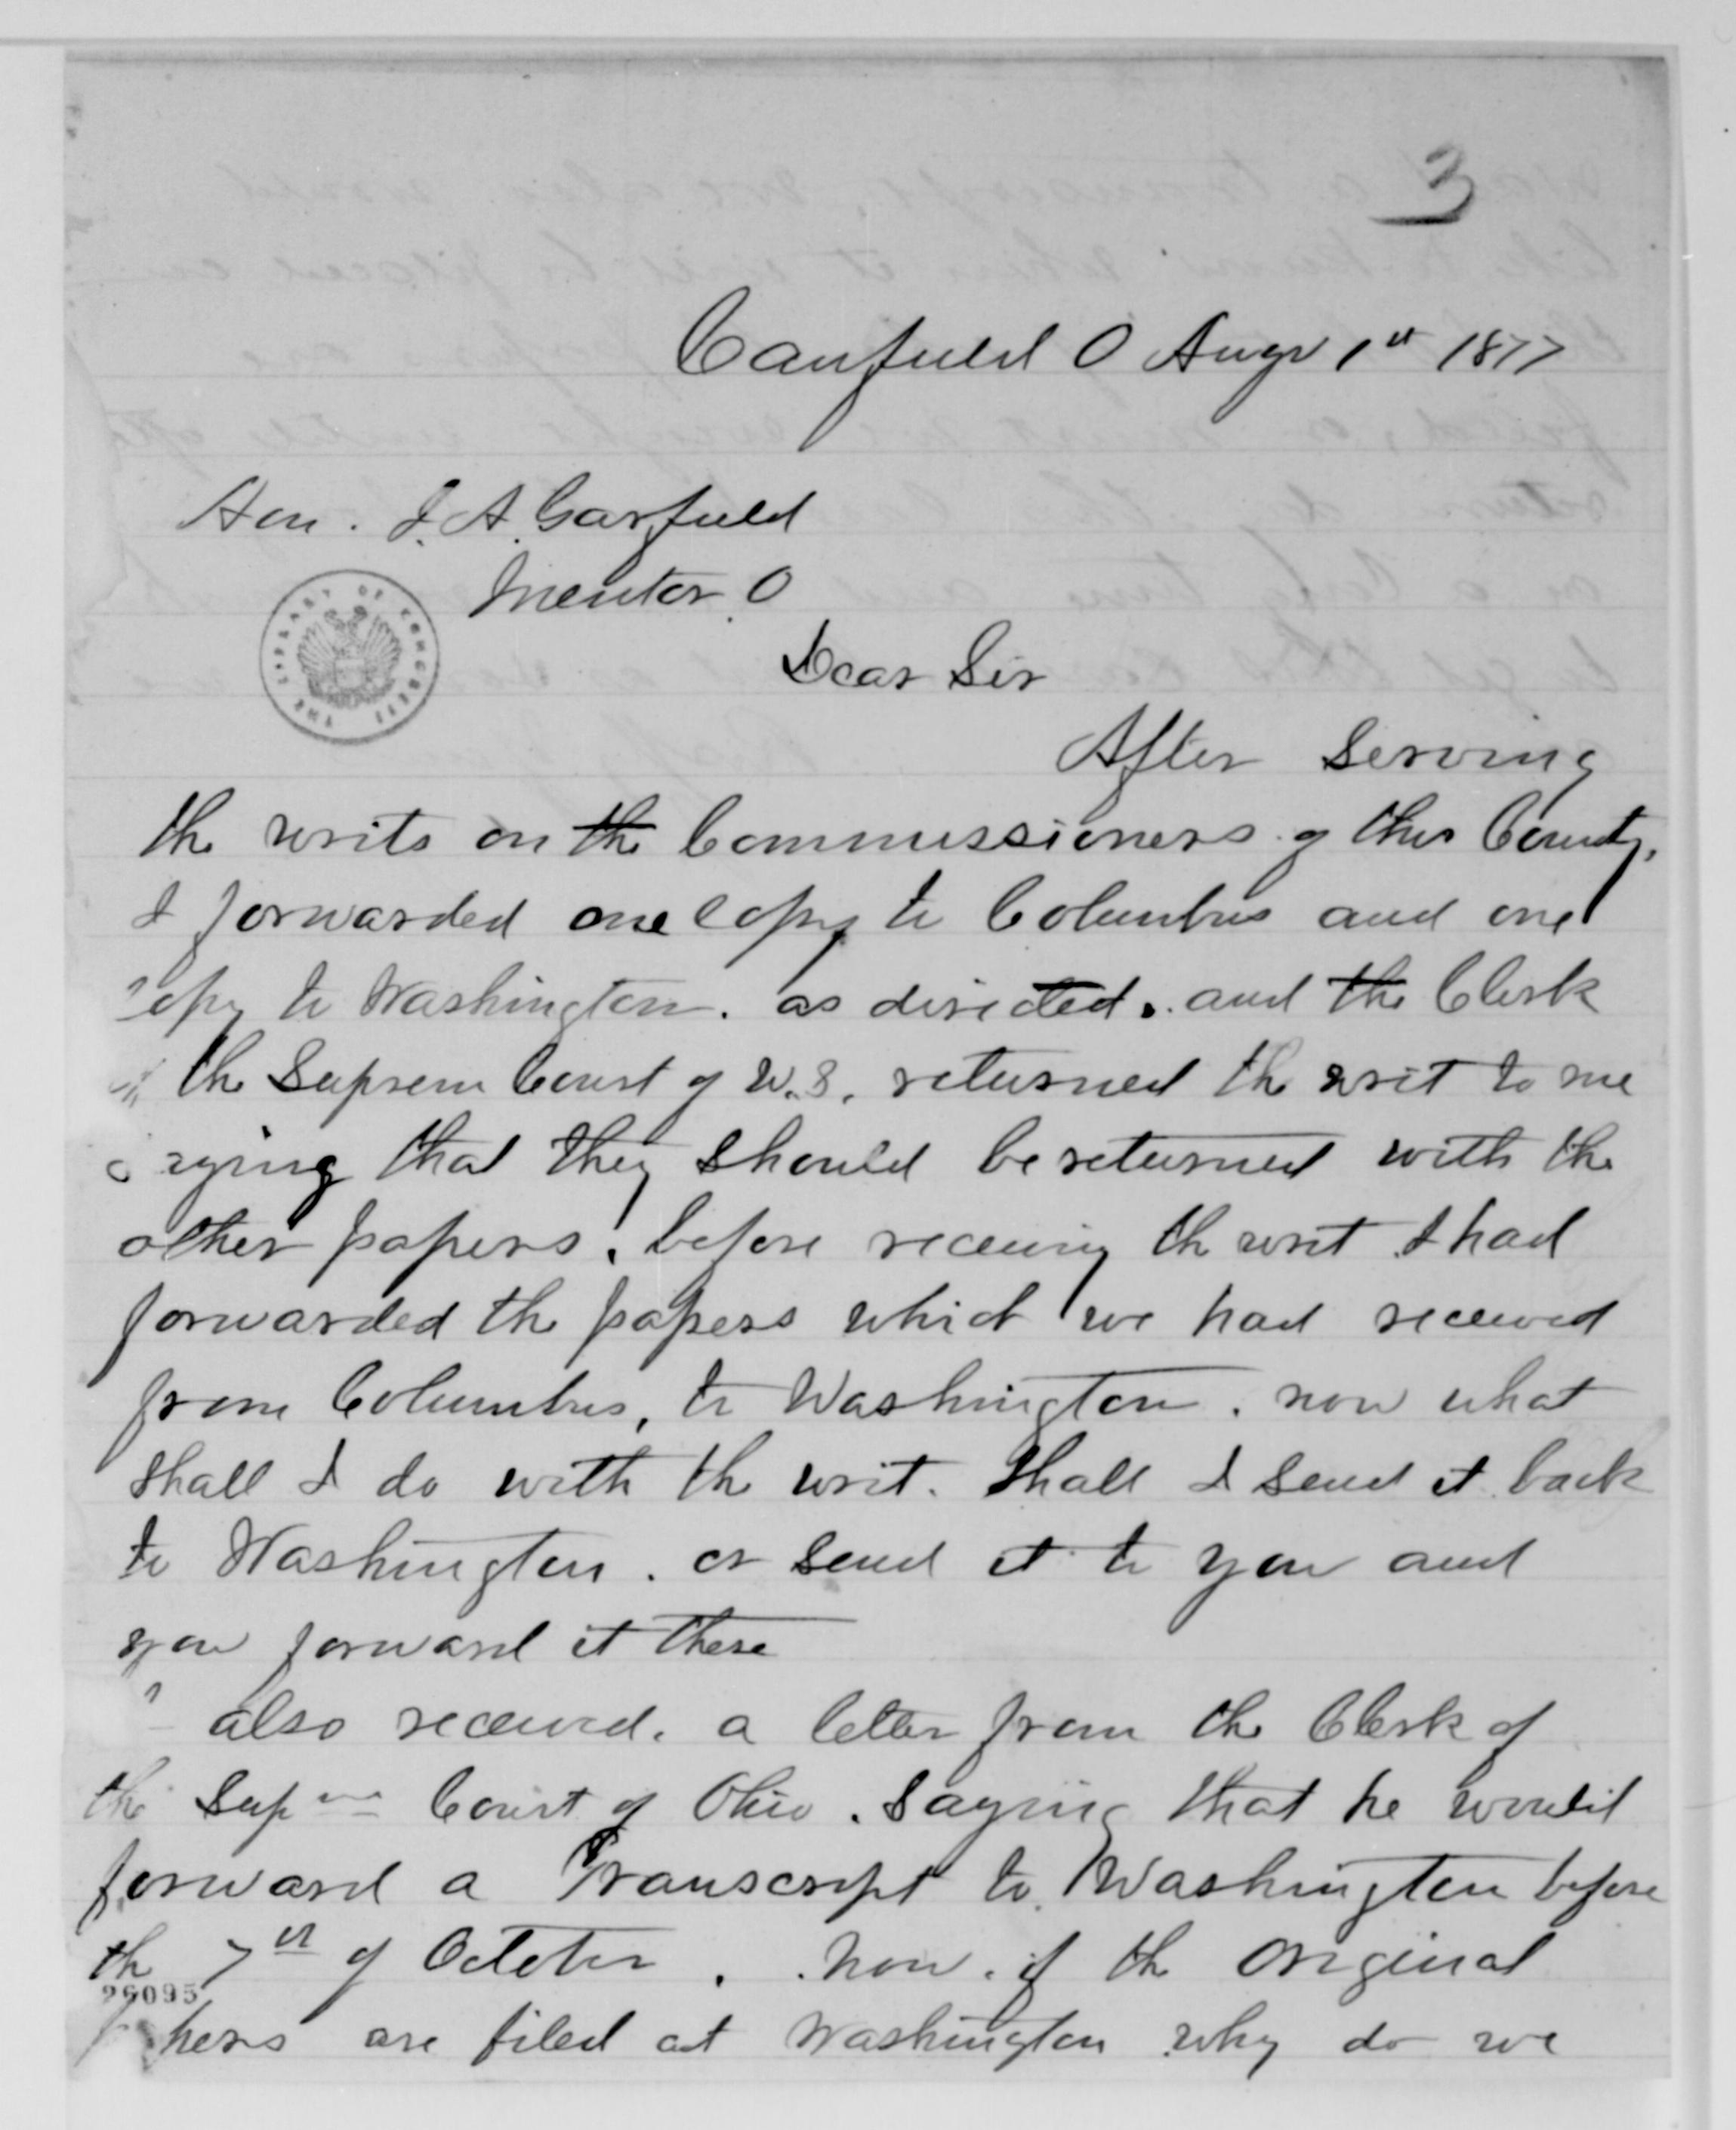 3
Canfield O Augt 1st 1877
Hon. J. A. Garfield
Mentor. O
THE LIBRARY OF CONGRESS
Dear Sir
After Serving
the writs on the Commissioners of this County,
I forwarded one Copy to Columbus and one
Copy to Washington. as directed. and the Clerk
of the Suprem Court of U.S. returned the writ to me
saying that they should be returned with the
other papers. before receiving the writ I had
forwarded the papers which we had received
from Columbus, to Washington. now what
shall I do with the writ. Shall I send it back
to Washington. or send it to you and
you forward it there
I also received. a letter from the Clerk of
the Supm Court of Ohio. Saying that he would
forward a Transcript to Washington before
the 7th of October. now. if the Original
26095
papers are filed at Washington why do we